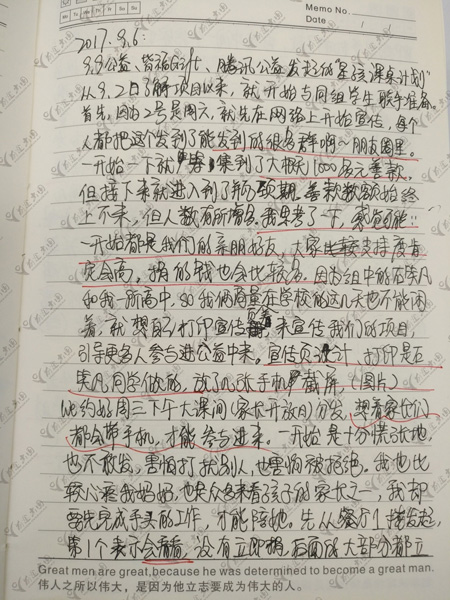 Memo No.
Date / /
Mo Tu We Th Fr Sa Su
2017.9.6:
9.9公益、皆福Gift、腾讯公益发起的"星孩课桌计划"
从9.2日了解项目以来,就开始与同组学生联手准备。
首先,因为2号是周六,就先在网络上开始宣传,每个
人都把这个发到了能发到的很多群啊~朋友圈里。
一开始一下就筹集到了大概元1000多元善款,
但接下来就进入到了瓶颈期,善款数额始终
上不来,但人数有所增多,我思考了一下,家
一开始都是我们的亲朋好友,大家支持度肯
定会高。捐的钱也会比较多。因为组中的石昊凡
和我一所高中,so我俩商量在学校的这几天也不能闲
着,就想自己打印宣传页,来宣传我们的项目,
引导更多人参与进公益中来。宣传页设计、打印是石
昊凡同学做的,放了几张手机截屏,(图片)
We约好周三下午大课间(家长开放日)分发,想着家长们
都会带手机,才能参与进来。一开始是十分慌张地,
也不敢发,害怕打扰别人,也害怕被拒绝。我也比
较心疼我妈妈,也是众多来看孩子的家长之一,我却
要先完成手头的工作,才能陪她。先从餐厅1楼发起,
第1个表示会看看,没有立即捐,后面的大部分都立
Great men are great,because he was determined to become a great man.
伟人之所以伟大,是因为他立志要成为伟大的人。